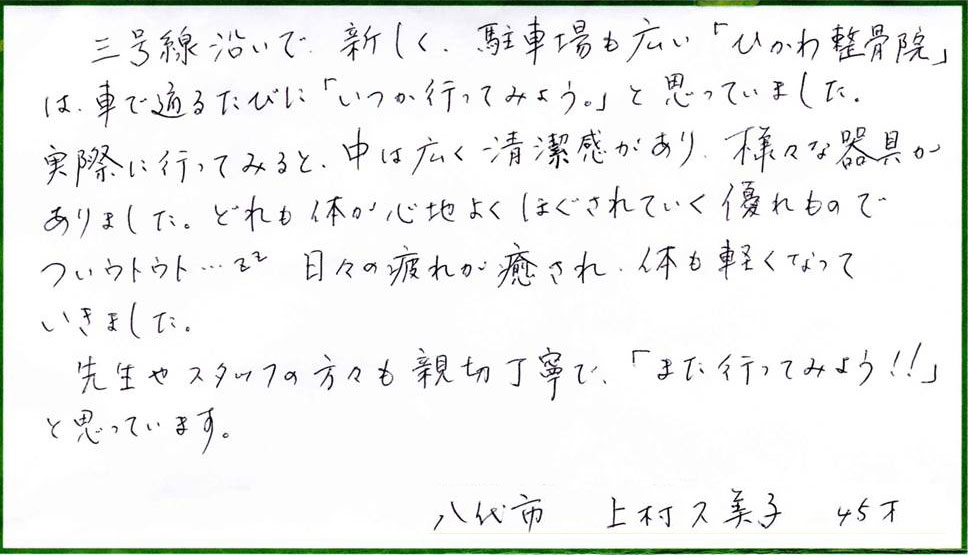 三号線沿いで、新しく、駐車場も広い「ひかわ整骨院」
は、車で通るたびに「いつか行ってみよう。」と思っていました。
実際に行ってみると、中は広く清潔感があり、様々な器具が
ありました。どれも体が心地よくほぐされていく優れもので
ついウトウト…zz 日々の疲れが癒され、体も軽くなって
いきました。
先生やスタッフの方々も親切丁寧で、「また行ってみよう!!」
と思っています。
八代市 上村久美子 45才